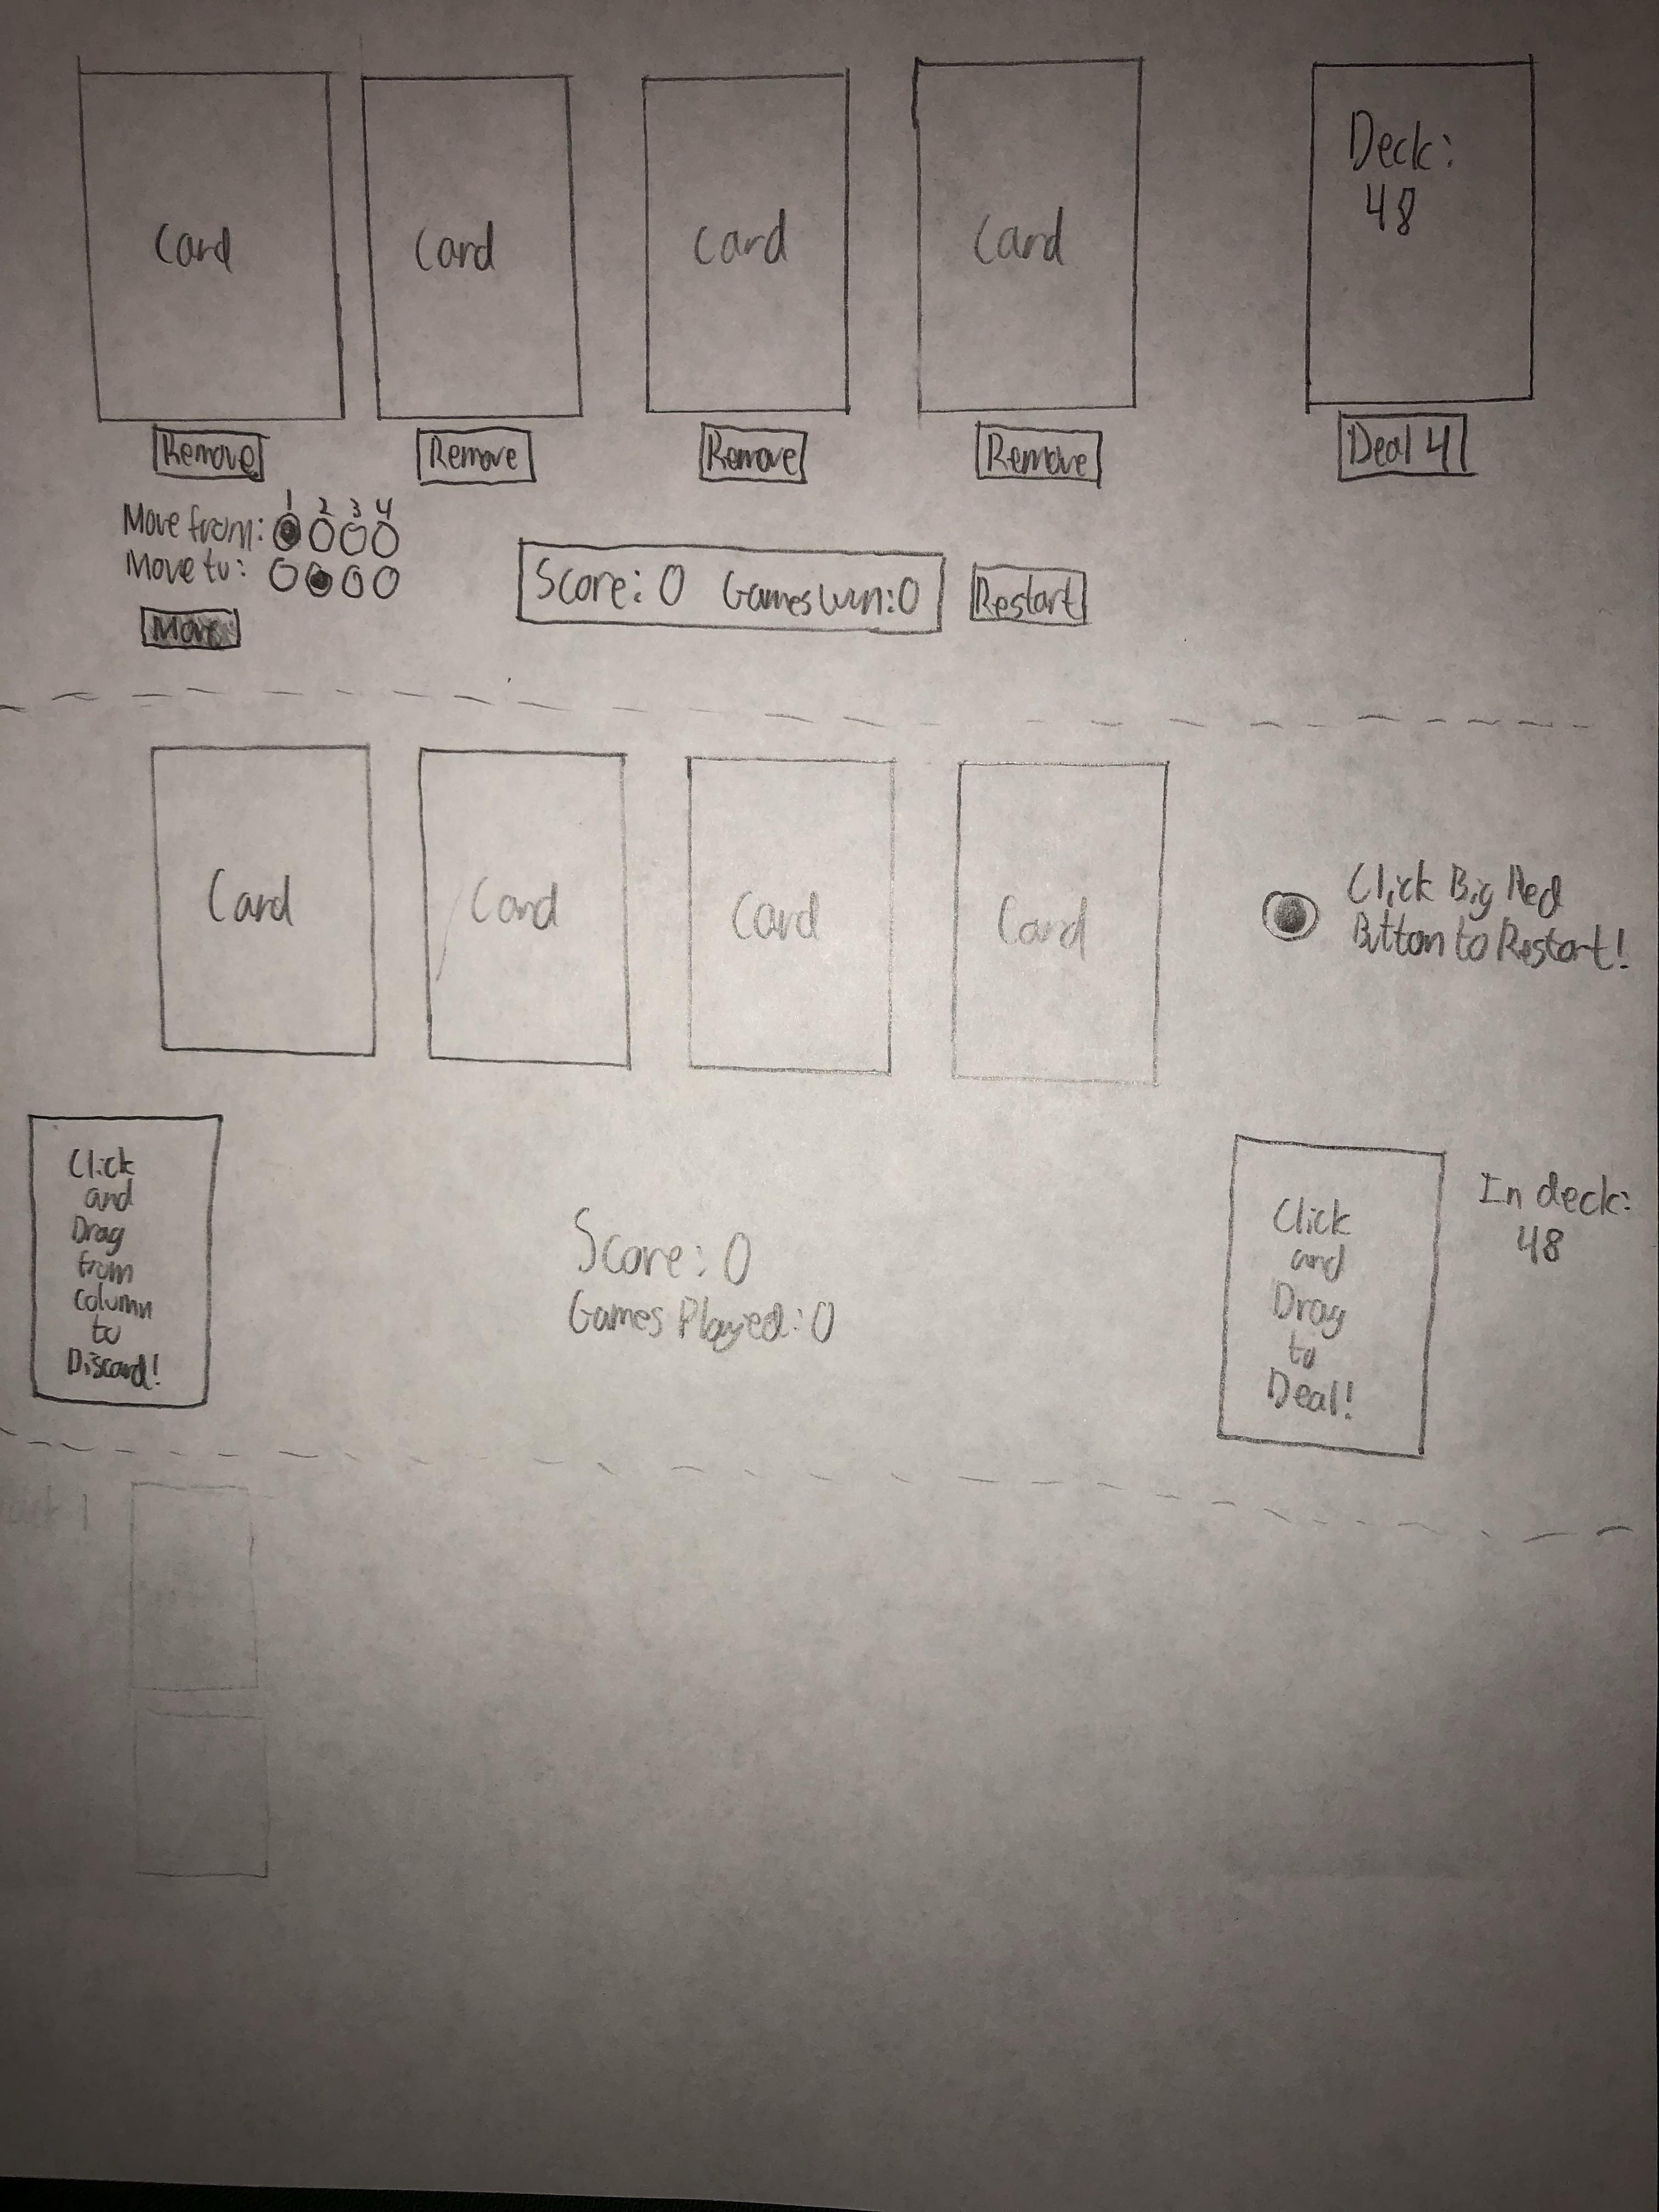 Card Card Card Card Deck:
48
Remove Remove Remove Remove Deal 4
1 2 3 4
Move from:
Move to:
Score: 0 Games Won:0 Restart
Move
Card Card Card Card
Click Big Red
Button to Restart!
Click
and
Drag
from
column
to
Discard!
Score: 0
Games Played: 0
Click
and
Drag
to
Deal!
In deck:
48
1